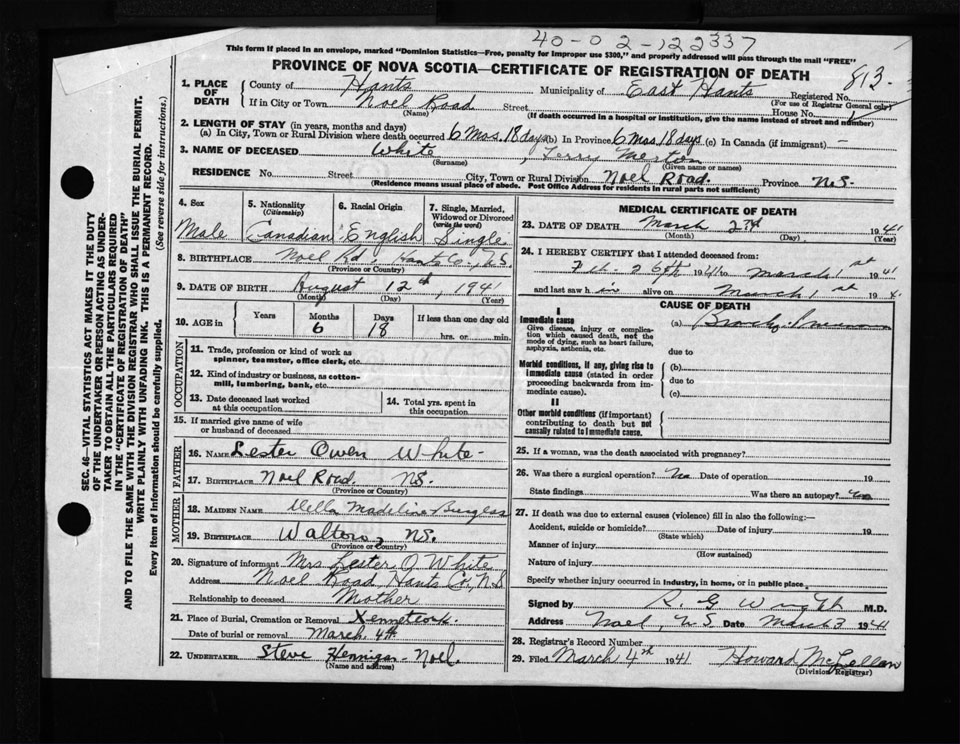 40-02-122337
This form if placed in an envelope, marked "Dominion Statistics—Free, penalty for improper use $300," and properly addressed will pass through the mail "FREE"
PROVINCE OF NOVA SCOTIA—CERTIFICATE OF REGISTRATION OF DEATH
813.
1. PLACE OF DEATH
County of Hants Municipality of East Hants Registered No.
(For use of Registrar General only)
If in City or Town Noel Road Street House No.
(Name) (If death occurred in a hospital or institution, give the name instead of street and number)
2. LENGTH OF STAY (in years, months and days)
(a) In City, Town or Rural Division where death occurred 6 Mos. 18 days (b) In Province 6 Mos. 18 days (c) In Canada (if immigrant) —
3. NAME OF DECEASED White, Terry Merton
(Surname) (Given name or names)
RESIDENCE No. Street City, Town or Rural Division Noel Road. Province N.S.
(Residence means usual place of abode. Post Office Address for residents in rural parts not sufficient)
4. Sex Male
5. Nationality (Citizenship) Canadian
6. Racial Origin English
7. Single, Married, Widowed or Divorced (write the word) Single
8. BIRTHPLACE Noel Rd, Hants Co., N.S.
(Province or Country)
9. DATE OF BIRTH August 12th, 1941
(Month) (Day) (Year)
10. AGE in Years Months 6 Days 18 If less than one day old hrs. or min.
OCCUPATION
11. Trade, profession or kind of work as spinner, teamster, office clerk, etc.
12. Kind of industry or business, as cotton-mill, lumbering, bank, etc.
13. Date deceased last worked at this occupation
14. Total yrs. spent in this occupation
15. If married give name of wife or husband of deceased
FATHER
16. NAME Lester Owen White-
17. BIRTHPLACE Noel Road. N.S.
(Province or Country)
MOTHER
18. MAIDEN NAME Madeline
19. BIRTHPLACE Walton, N.S.
(Province or Country)
20. Signature of informant Mrs Lester O White
Address Noel Road Hants Co., N.S
Relationship to deceased Mother
21. Place of Burial, Cremation or Removal
Date of burial or removal March. 4th
22. UNDERTAKER Steve Hennigar- Noel.
(Name and address)
MEDICAL CERTIFICATE OF DEATH
23. DATE OF DEATH March 2nd 1941
(Month) (Day) (Year)
24. I HEREBY CERTIFY that I attended deceased from:
Feb. 26th 1941 to March 1st 1941
and last saw him alive on March 1st 194
CAUSE OF DEATH
I
Immediate cause (a)
Give disease, injury or complication which caused death, not the mode of dying, such as heart failure, asphyxia, asthenia, etc.
due to
Morbid conditions, if any, giving rise to immediate cause (stated in order proceeding backwards from immediate cause).
(b)
due to
(c)
II
Other morbid conditions (if important) contributing to death but not causally related to immediate cause.
25. If a woman, was the death associated with pregnancy?
26. Was there a surgical operation? no Date of operation 19
State findings Was there an autopsy? no
27. If death was due to external causes (violence) fill in also the following:—
Accident, suicide or homicide? Date of injury 19
(State which)
Manner of injury
(How sustained)
Nature of injury
Specify whether injury occurred in industry, in home, or in public place
Signed by R G Wright M.D.
Address Noel, N S Date March 3 1941
28. Registrar's Record Number
29. Filed March 4th 1941 Howard McLellan
(Division Registrar)
SEC. 46—VITAL STATISTICS ACT MAKES IT THE DUTY
OF THE UNDERTAKER OR PERSON ACTING AS UNDER-
TAKER TO OBTAIN ALL THE PARTICULARS REQUIRED
IN THE "CERTIFICATE OF REGISTRATION OF DEATH"
AND TO FILE THE SAME WITH THE DIVISION REGISTRAR WHO SHALL ISSUE THE BURIAL PERMIT.
WRITE PLAINLY WITH UNFADING INK. THIS IS A PERMANENT RECORD.
Every item of information should be carefully supplied. (See reverse side for instructions.)